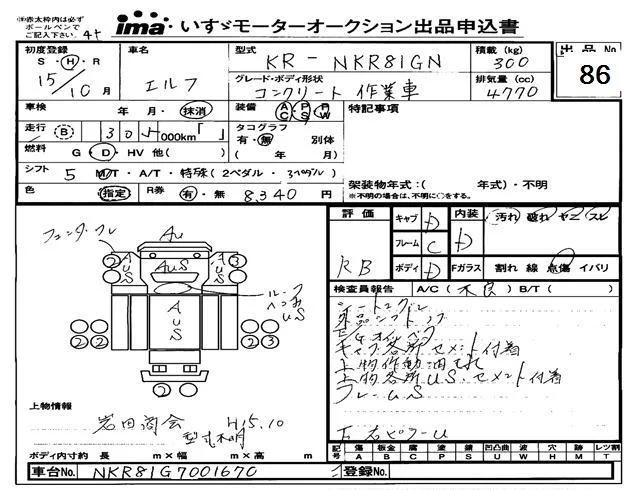 ※赤太枠内は必ず
ボールペンで
ご記入下さい。 4t
ima いすゞモーターオークション出品申込書
初度登録 車名 型式 積載 (kg) 出品No
S・H・R エルフ KR-NKR81GN 300 86
15年10月 グレード・ボディ形状 排気量(cc)
コンクリート 作業車 4770
車検 年・月・抹消 装備 AC PS PW 特記事項
走行 B 30 ,000km「 」 タコグラフ
有・無 別体
燃料 G・D・HV 他( ) ( 年 月)
シフト 5 M/T・A/T・特殊(2ペダル・3ペダル)
架装物年式:( 年式)・不明
色 指定 R券 有・無 8,340 円 ※不明の場合は、不明に○をする。
評価 キャブ D 内装 汚れ 破れ ヤニ スレ
フレーム C D
RB ボディ D Fガラス 割れ 線 点傷 イバリ
検査員報告 A/C(不良) B/T( )
キャブ各所セメント付着
上物作動油もれ
上物各所US.セメント付着
フレームS
下 右ピラーU
AU
AUS
AUS
AUS
AUS
ルーフ
US
2 3 2 2 2 3 2
上物情報
岩田商会 H15.10
型式不明
ボディ内寸約 長 m×幅 m×高 m
記号 傷 A 板金 B 腐 C 塗 P サビ S 凹凸曲 U 波 W 穴 H 跡 M レツ割 T
車台No. NKR81G7001670 登録No.